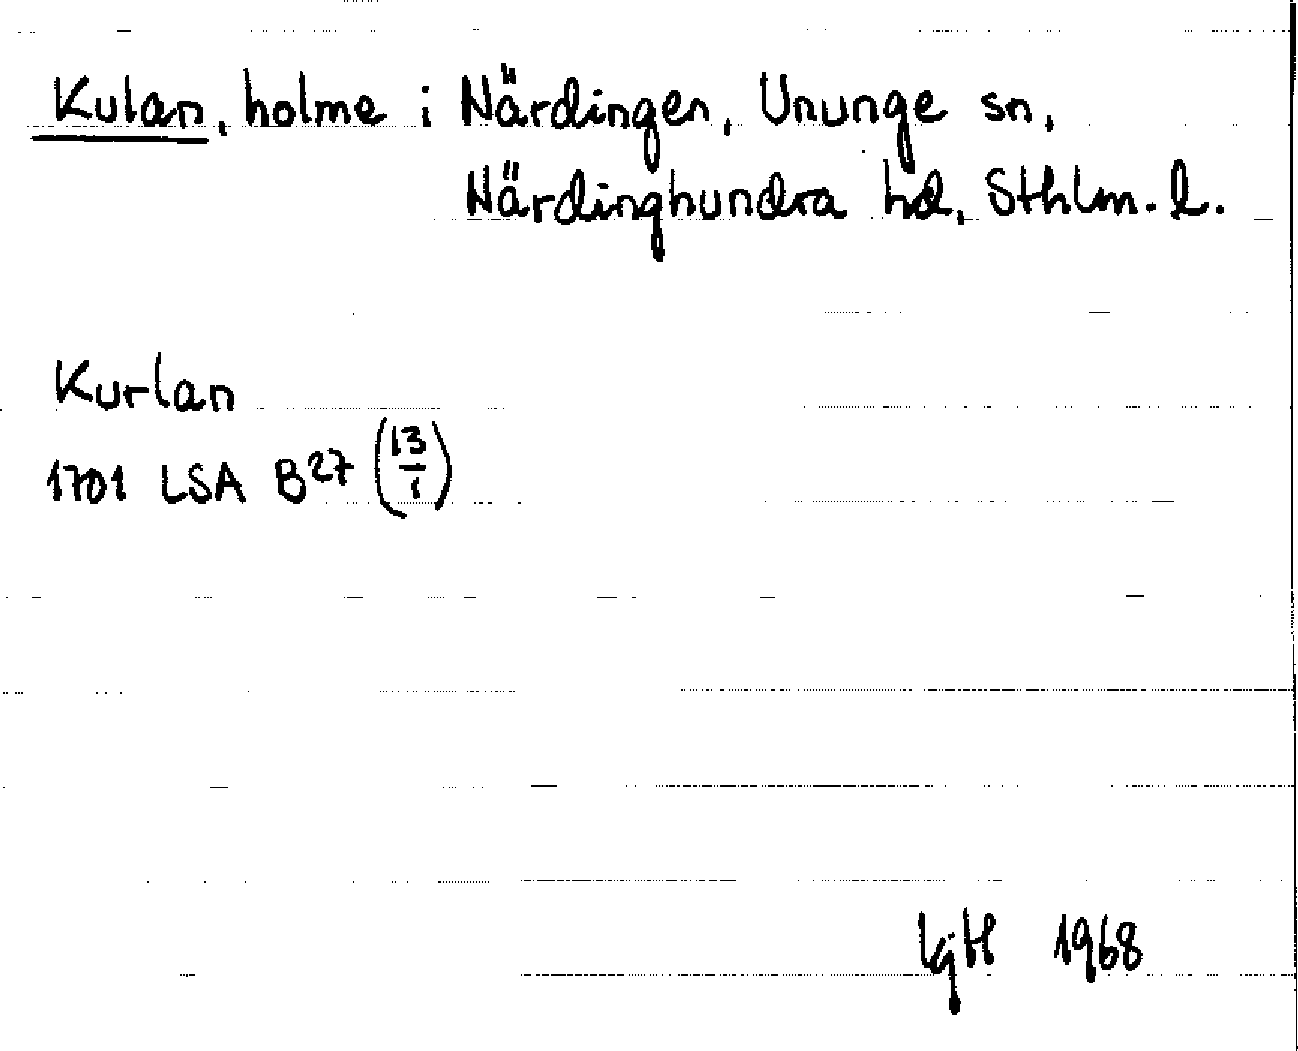 Kulan, holme i Närdingen, Ununge sn,
Närdinghundra hd, Sthlm. l.
Kurlan
1701 LSA B27 (13/1)
IgH 1968